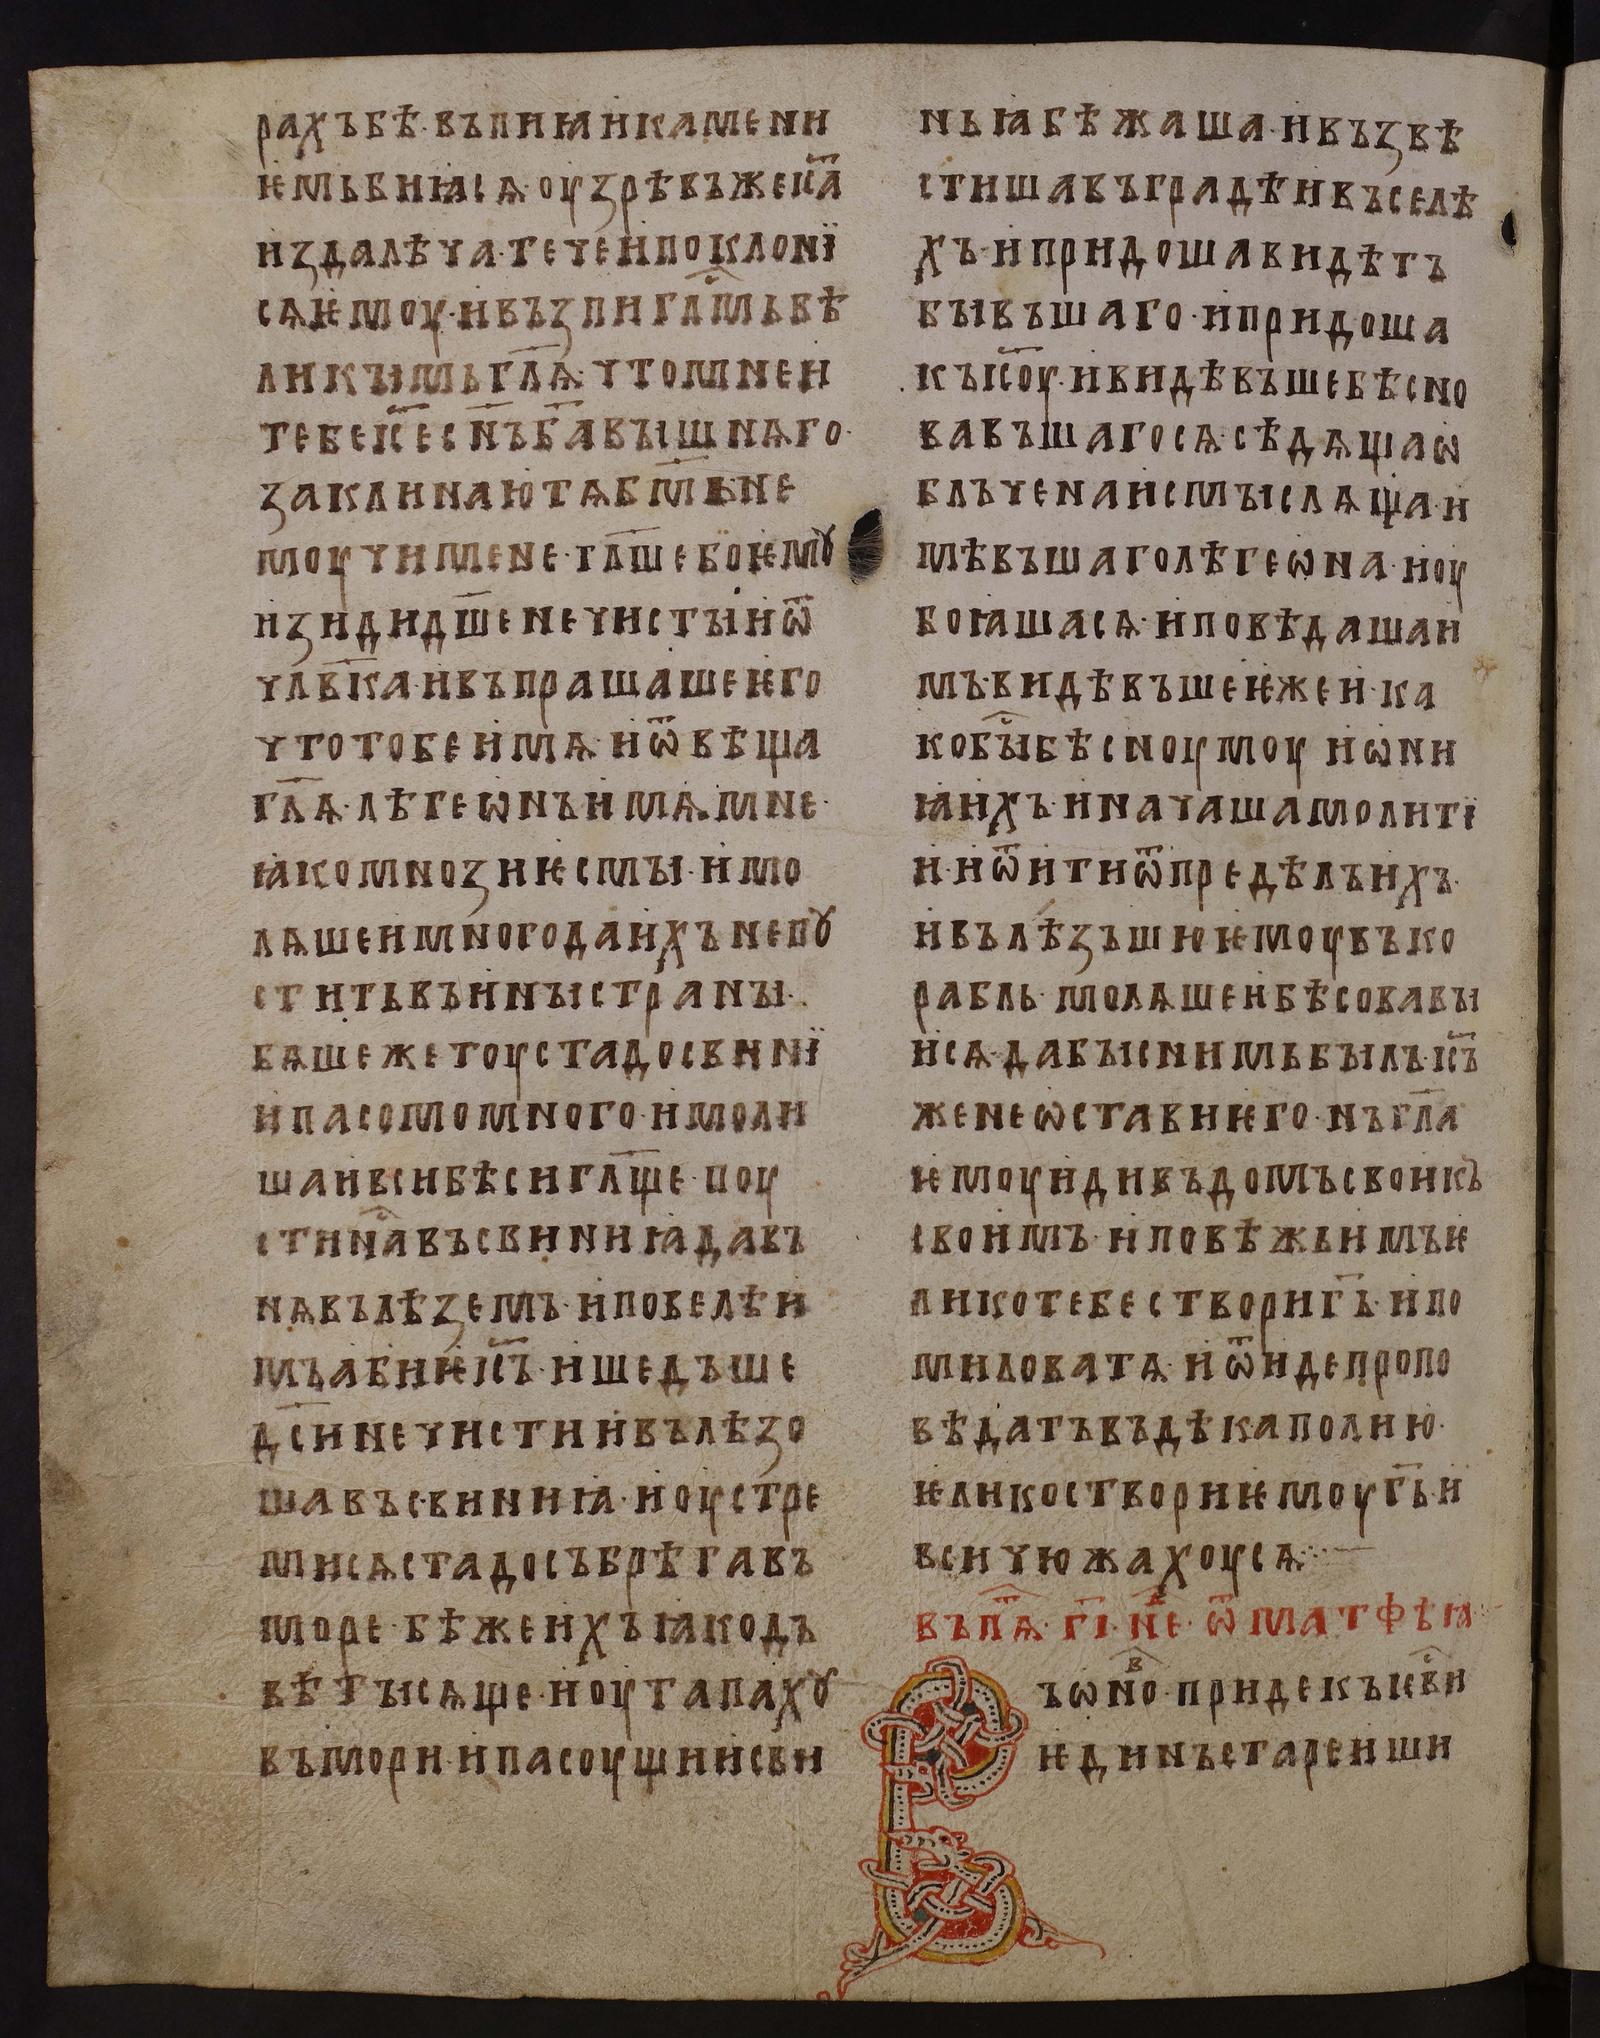 рахъбѣ·въпиꙗикамени
ѥмьбиꙗсѧ·оузрѣвъжеіс҃а
издалѣча·течеипоклонї
сѧѥмоу·ивъзпигла҇мьвѣ
ликъімьгл҃ѧ·чтомнеи
тебеіс҃есн҃ъб҃авъішнѧго·
заклинаютѧбм҃ьне
моучимене·гл҃шебоѥмꙋ
изидидш҃енечистъіиѿ
члв҃ка·ивъпрашашеѥго
чтотобеимѧ·иѿвѣща
гл҃ѧ·лѣгеѡнъимѧ·мне·
ꙗкомнозиѥсмъі·имо
лѧшеимногодаихънепꙋ
ститьвъинъістранъі·
бѧшежетоустадосвинї
ипасомомного·имоли
шаивсибѣсигл҃ще·поу
стин҇авъсвиниꙗдавъ
нѧвълѣземъ·иповелѣи
мъабиѥіс҃ъ·ишедъше
дс҃инечистиивълѣзо
шавъсвиниꙗ·иоустре
мисѧстадосъбрѣгавъ
море·бѣжеихъꙗкодъ
вѣтъісѧще·иоутапахꙋ
въмори·ипасоущиисви
ньꙗбѣжаша·ивъзвѣ
стишавъградѣивъселѣ
хъ·ипридошавидѣтъ
бъівъшаго·ипридоша
къіс҃оу·ивидѣвъшебѣсно
вавъшагосѧ·сѣдѧщаѡ
блъченаисмъіслѧща·и
мѣвъшаголѣгеѡна·иоу
боꙗшасѧ·иповѣдашаи
мъ·видѣвъшеижеи·ка
кобъі҇бѣсноумоу иѡни
ꙗихъ·иначашамолитї
и·иѿитиѿпределъихъ·
ивълѣзъшюѥмоувъко
рабль·молѧшеибѣсовавъі
исѧ·дабъіснимьбъілъ·іс҃ъ
женеѡставиѥго·нъгл҃а
ѥмоуидивъдомъсвоикъ
своимъ·иповѣжьимъѥ
ликотебествориг҃ь·ипо
миловатѧ·иѿидепропо
вѣдатъвъдѣкаполию·
ѥликостворижемоуг҃ь·и
всичюжахоусѧ
въпѧ҃·г҃і·не҃·ѿматфѣꙗ
ъѡноⷡ·придекъіс҇ви
ѥдинъстареиши